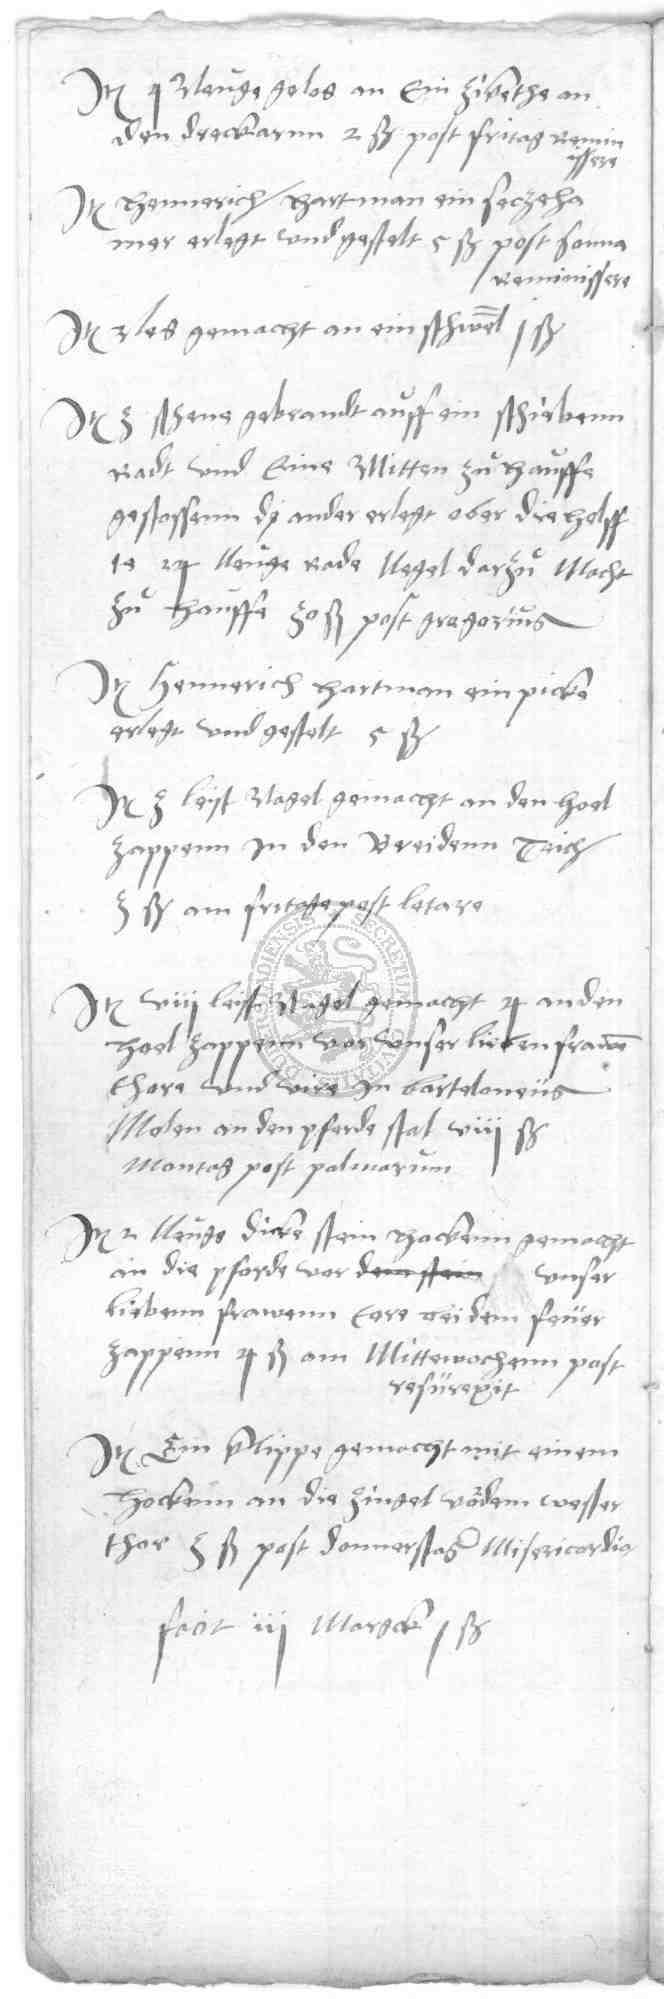 Itz 4 Neuge gelos an Ein zikethe an
den dreckarnn 2 ß post fritag Remin
issere
Itz hennerich hartman ein seczeha
mer erlegt vnd gestelt 5 ß post sonna
Reminissere
Itz 3les gemacht an ein schwel j ß
Itz 3 schene gebrandt auff ein schiebenn
Radt vnd Eine Mitten zu hauffe
gestossenn di ander erlegt ober die helff
te 24 Neuge rade Negel darzu Macht
zu hauffe 30 ß post gregorius
Itz Hennerich hartman ein picke
erlegt vnd gestelt 5 ß
Itz 3 leist Nagel gemacht an den hoel
zappenn In den Breidenn Teich
3 ß am fritage post letare
Itz viij leist Nagel gemacht 4 an den
hoel zappenn vor vnser lieben frawe
thore vnd vire In barteloneus
Molen an den pferde stal viij ß
Montag post palmarum
Itz 2 Neuge dicke stein hackenn gemacht
an die pforde vor dem stein vnser
liebenn frawenn tore bei dem feuer
zappenn 4 ß am Mittewochenn post
resurexit
Itz Ein klippe gemacht mit einem
hockenn an die zingel vor dem wester
thor 3 ß post donnerstag Misericordia
facit iij Marck j ß
SECRETUM